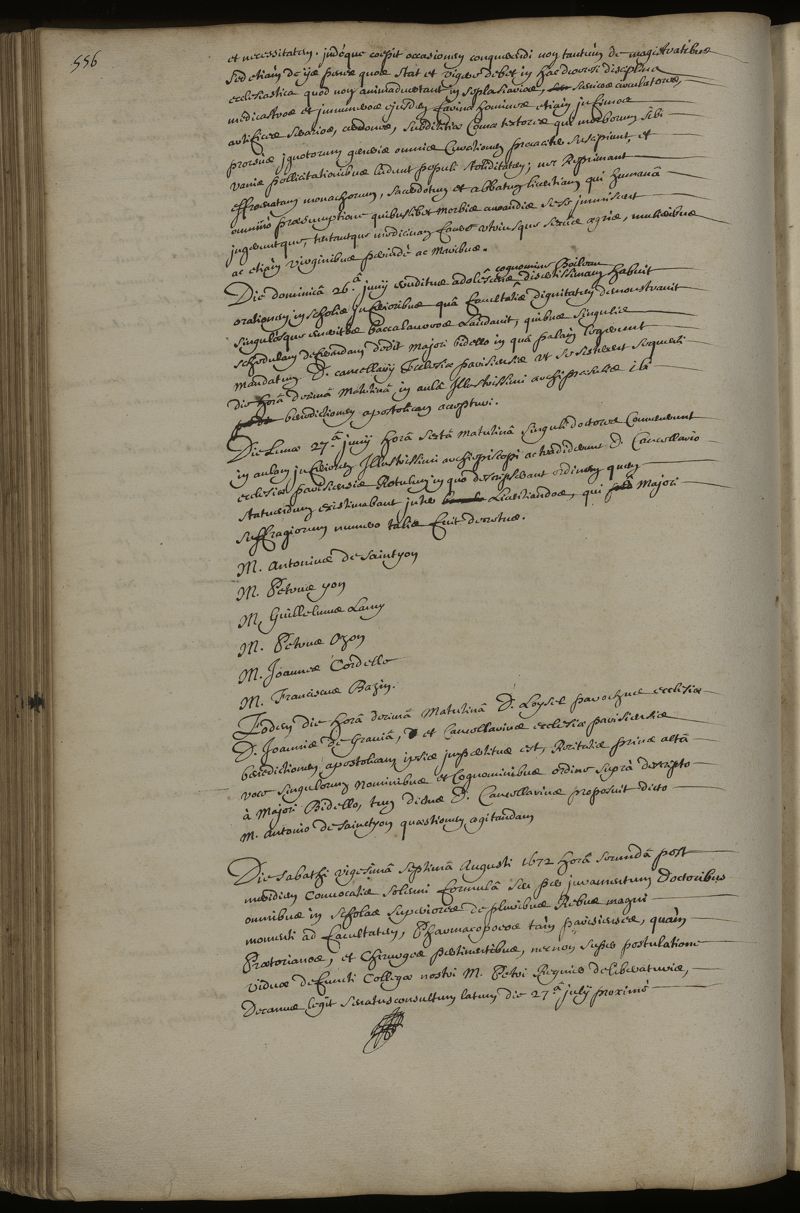 556
et necessitatem. indéque coepit occasionem conquerendi non tantùm de magistratibus
sed etiam de ijs penes quos stat et vigere debet in hac diversi disciplina
ecclesiastica quod non animadvertant in seplasiarios, senices circulatores,
medicastros et innumeros ejusdem farinæ homines etiam infimos
artifices sutorios, cerdones, subdititiæ comæ textores qui morborum sibi
prorsus ignotorum generis omnis curationem procaciter suscipiunt, et
vanis pollicitationibus ludunt populi stoliditatem; nec reprimant
effrenatam monachorum, sacerdotum et abbatum licentiam qui humanâ
omninò præsumptione quibuslibet morbis curandis sese immiscent
ingeruntque, tractantque medicinam faciunt utriusque sexus ægris, mulieribus
ac etiam virginibus perindè ac maribus.
cognomine Boileau
Die dominicâ 26.â junij eruditus adolescens disertissimam habuit
orationem in scholis inferioribus quâ facultatis dignitatem demonstravit
singulósque emeritos baccalaureos laudavit, quibus singulis
schedulam deferendam dedit major bidellus in quâ palàm legerunt
mandatum D. cancellarij Ecclesiæ parisiensis ut se sisterent sequenti
die horâ decimâ matutinâ in aulâ Illustrissimi archipræsulis ibi
benedictionem apostolicam accepturi.
Die Lunæ 27.â junij horâ sextâ matutinâ singuli doctores convenerunt
in aulam inferiorem Illustrissimi archiepiscopi ac tradiderunt D. Cancellario
ecclesiæ parisiensis Rotulum in quo descripserant ordinem quem
statuendum existimabant inter Licentiandos, qui majori
suffragiorum numero talis fuit decretus.
M. Antonius de Sainctyon
M. Petrus yon
M. Guillelmus Lamy
M. Petrus Ozon
M. Joannes Cordelle
M. Franciscus Bazin.
Eodem die horâ decimâ matutinâ D. Loysel parochus ecclesiæ
D. Joannis De Graviâ, et Cancellarius ecclesiæ parisiensis
benedictionem apostolicam ipsis impertitus est, Recitatis priùs altâ
voce singulorum nominibus et cognominibus ordine suprà descripto
à Majori Bidello, tum dictus D. Cancellarius proposuit dicto
M. Antonio de Sainctyon quæstionem agitandam
Die sabathi vigesimâ septimâ Augusti 1672 horâ secundâ post
meridiem convocatis solemni formulâ seu per juramentum Doctoribus
omnibus in scholas superiores de pluribus Rebus magni
momenti ad facultatem, Pharmacopoeos tàm parisienses, quàm
Prætorianos, et chirurgos pertinentibus, necnon super postulatione
viduæ defuncti Collegæ nostri M. Petri Regnier deliberaturis,
Decanus legit senatusconsultum latum die 27.â julij proximè